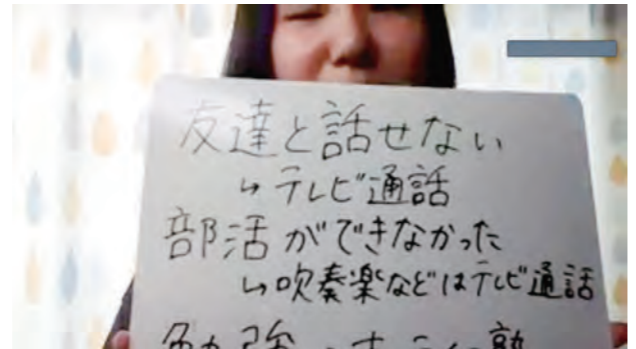 友達と話せない
↳テレビ通話
部活ができなかった
↳吹奏楽などはテレビ通話
勉強